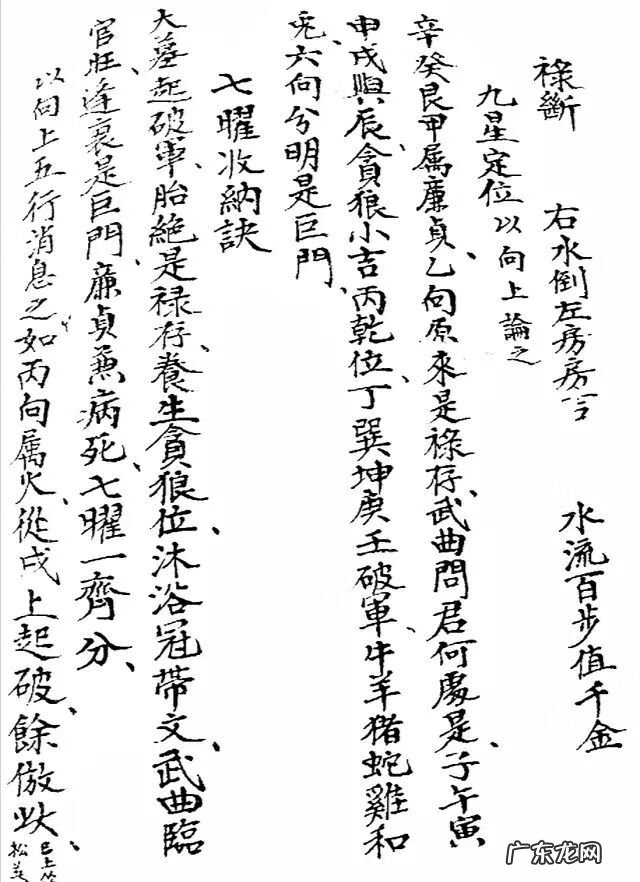 祿斷 右水倒左房房 水流百步值千金
九星定位以向上論之
辛癸艮甲属廉貞乙向原來是祿存武曲問君何處是子午寅
申戌與辰貪狼小吉丙乾位丁巽坤庚壬破軍牛羊猪蛇雞和
兎六向分明是巨門
七曜收納訣
大墓起破軍胎絕是祿存養生貪狼位沐浴冠帶文武曲臨
官旺逢衰是巨門廉貞兼病死七曜一齊分
以向上五行消息之如丙向属火從戌上起破餘倣此
巳上
廣东龙网